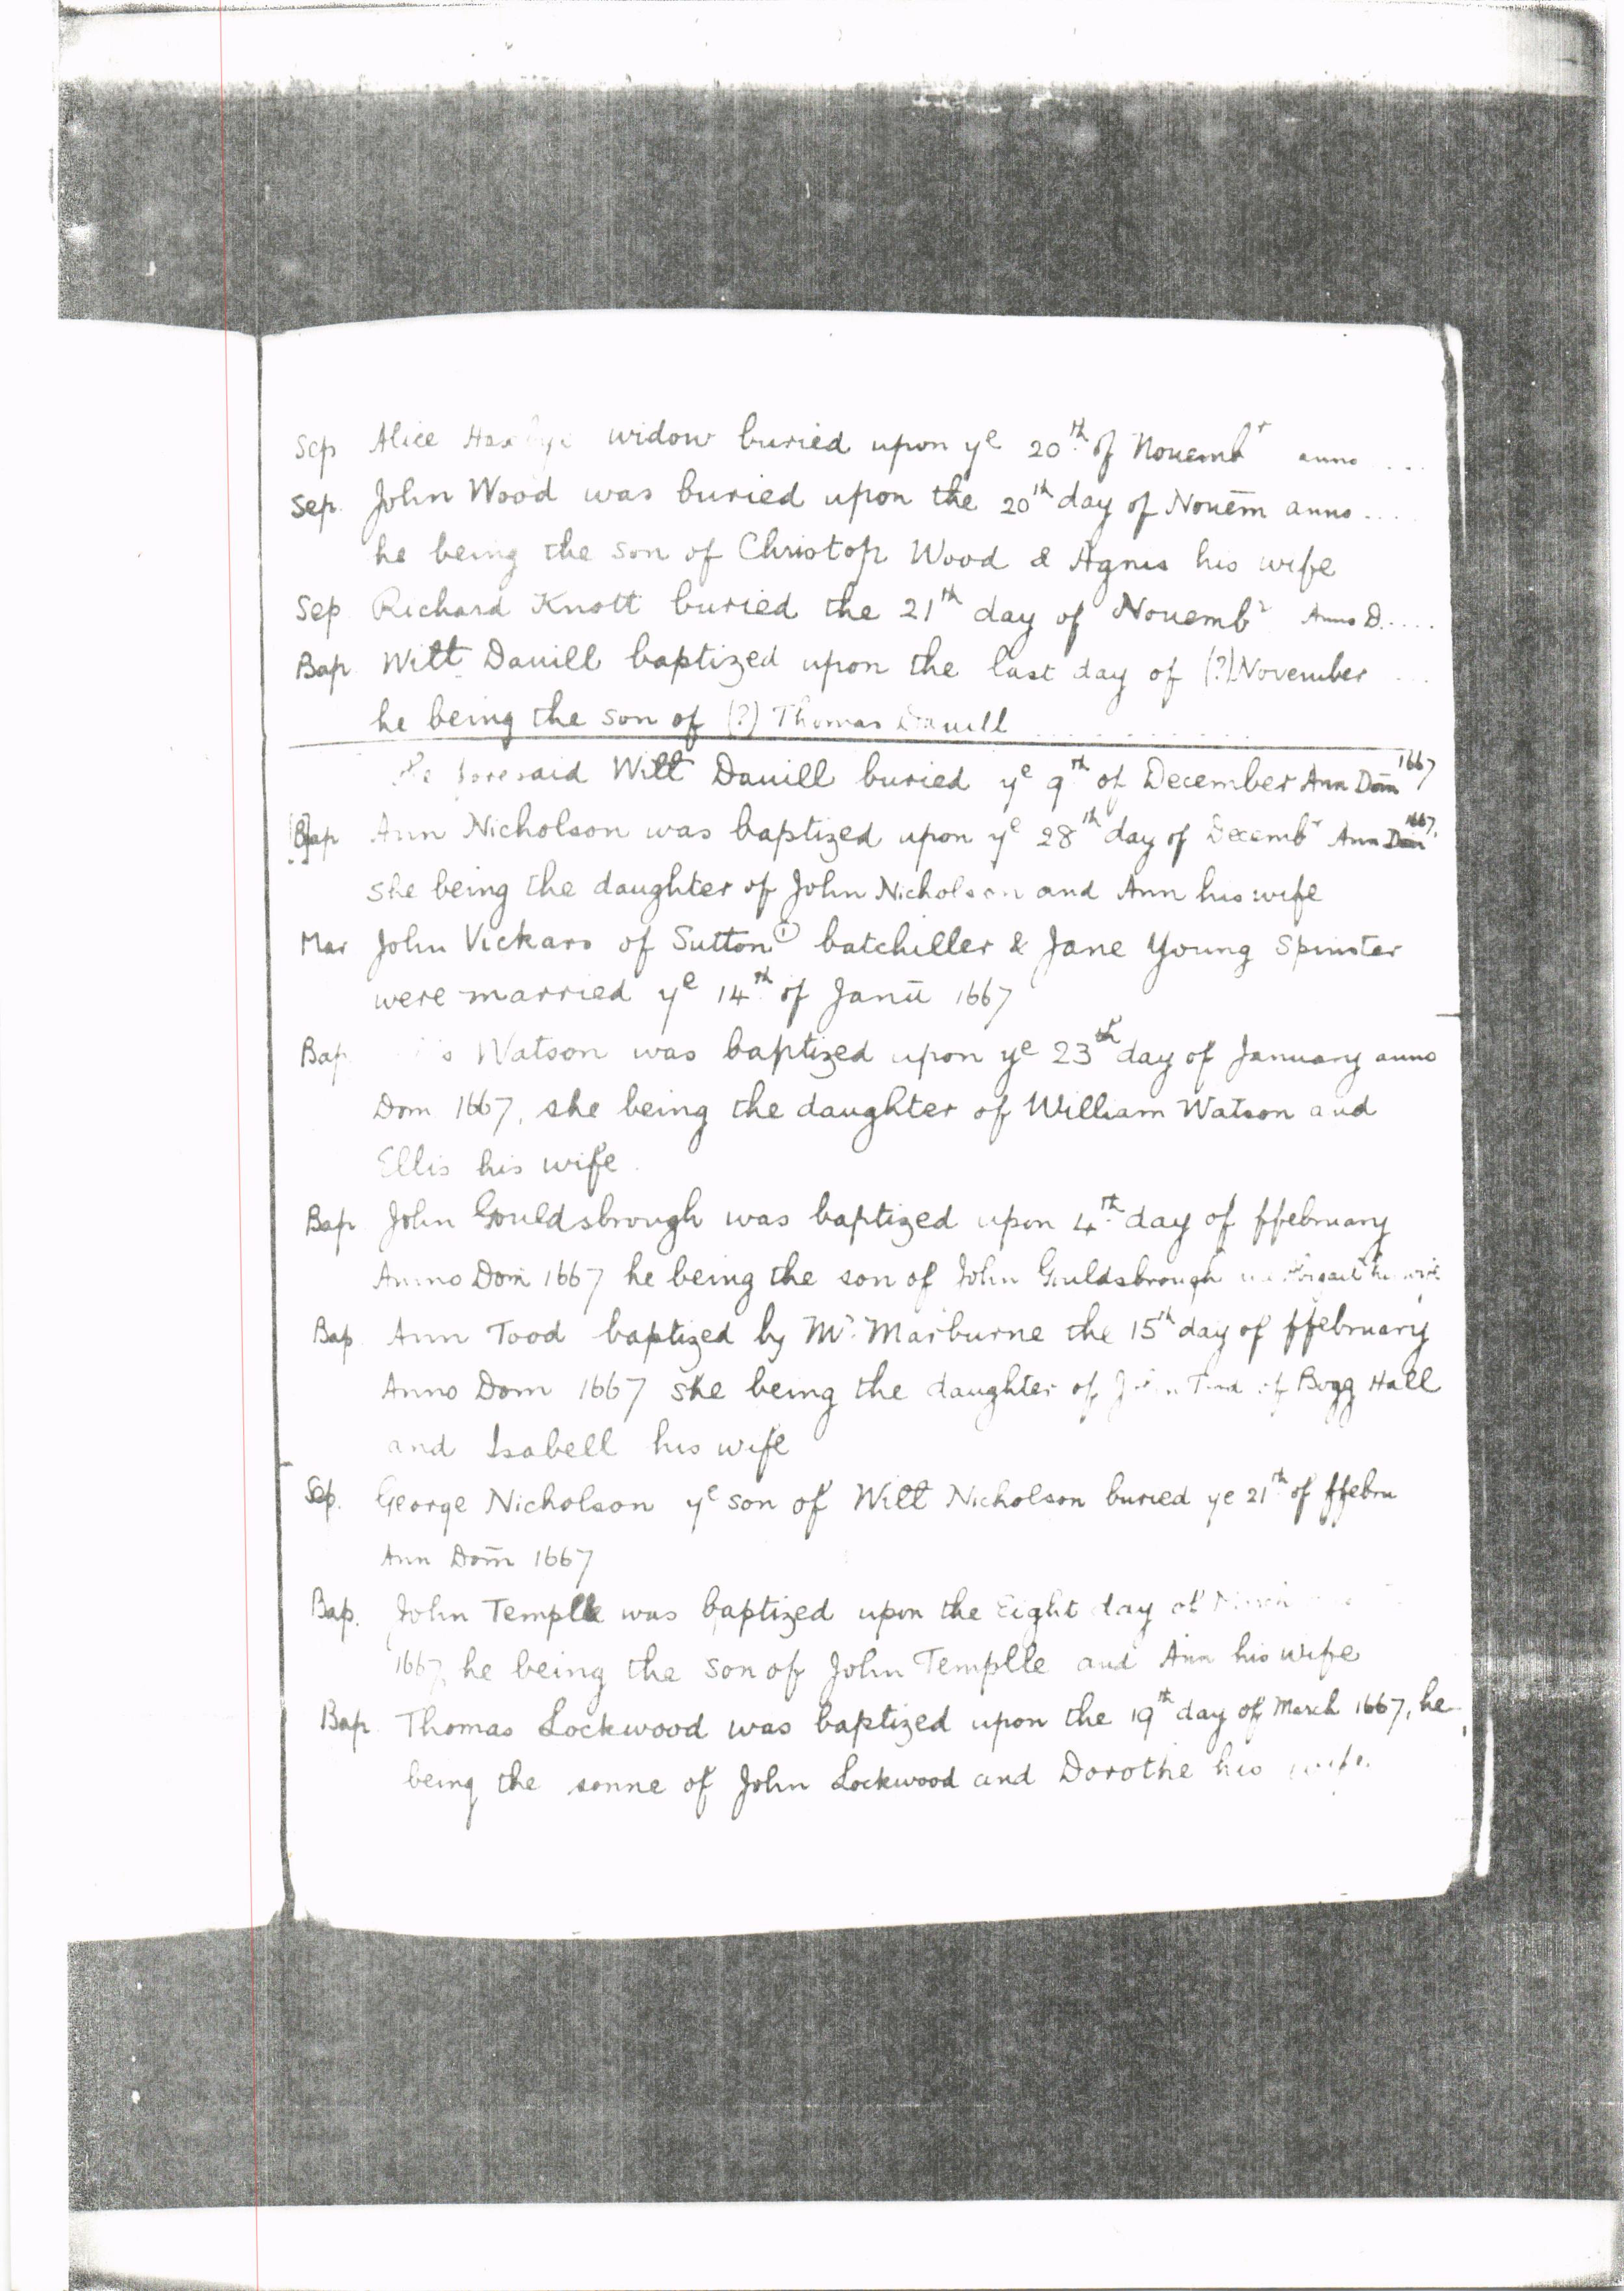 Sep Alice widow buried upon ye 20th of Nouembr anno ....
Sep. John Wood was buried upon the 20th day of Nouēm anno ....
he being the son of Christop Wood & Agnis his wife
Sep Richard Knott buried the 21th day of Nouembr Anno D.....
Bap Witt Dauill baptized upon the last day of (?) November ...
he being the son of (?) Thomas Dauill ............
foresaid Witt Dauill buried ye 9th of December Ann Dom̄ 1667
Bap Ann Nicholson was baptized upon ye 28th day of Decembr Ann Dom 1667.
she being the daughter of John Nicholson and Ann his wife
Mar John Vickars of Sutton ① batchiller & Jane Young Spinster
were married ye 14th of Janū 1667
Bap Watson was baptized upon ye 23th day of January anno
Dom 1667, she being the daughter of William Watson and
Ellis his wife.
Bap John Gouldsbrough was baptized upon 4th day of ffebruary
Anno Dom̄ 1667 he being the son of John Guldsbrough
Bap. Ann Tood baptized by Mr. Marburne the 15th day of ffebruary
Anno Dom 1667 she being the daughter of of Bogg Hall
and Isabell his wife
Sep. George Nicholson ye son of Witt Nicholson buried ye 21th of ffebru
Ann Dom̄ 1667
Bap. John Templle was baptized upon the Eight day of March
1667, he being the son of John Templle and Ann his wife
Bap. Thomas Lockwood was baptized upon the 19th day of March 1667, he
being the sonne of John Lockwood and Dorothie his wife.